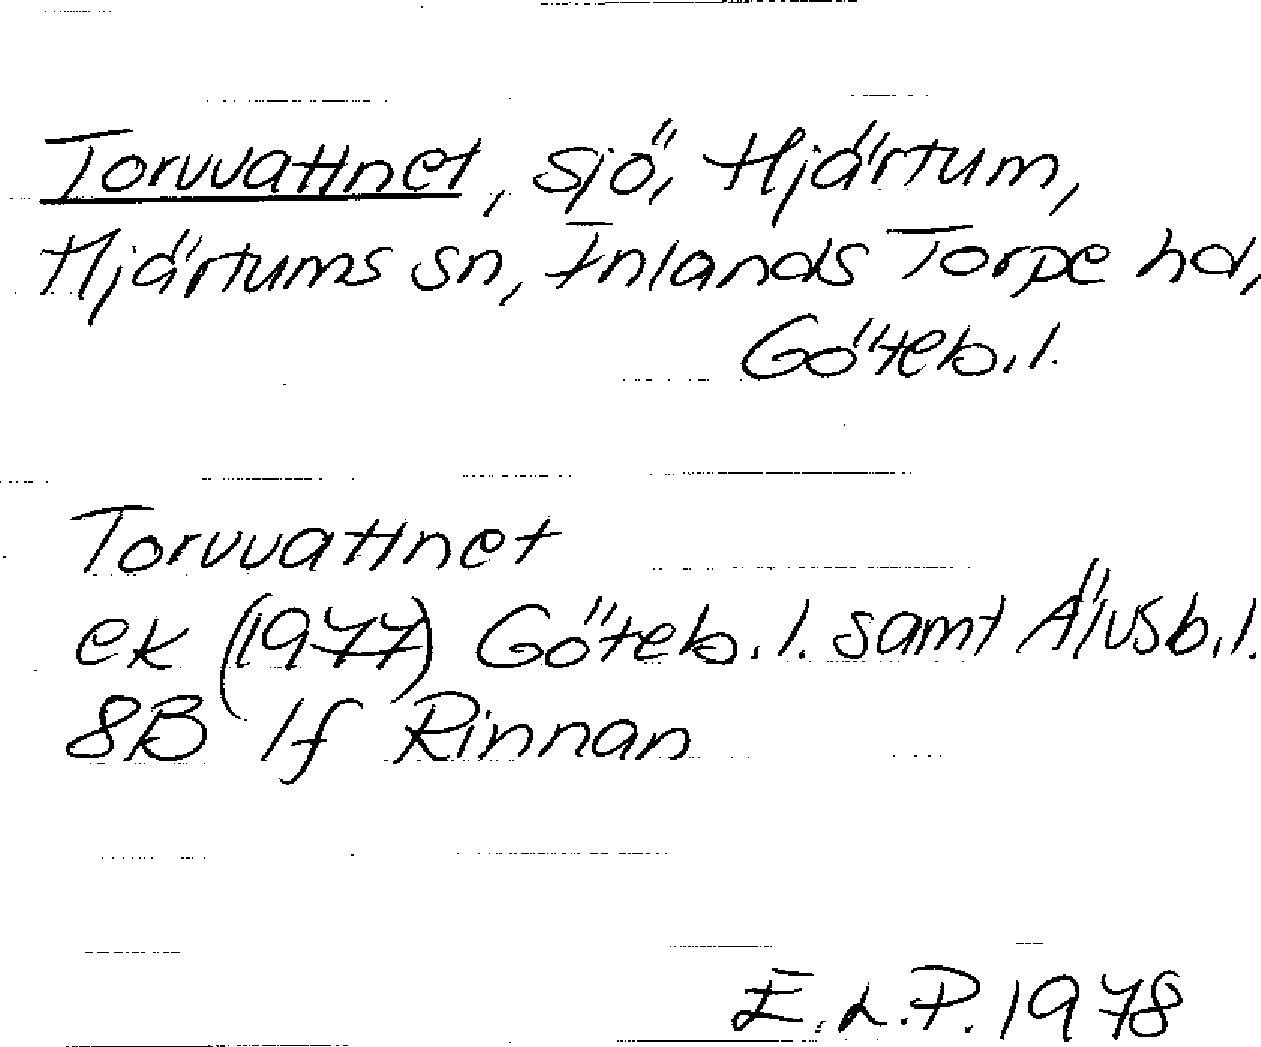 Torvvattnet, sjö, Hjärtum,
Hjärtums sn, Inlands Torpe hd,
Göteb.l.
Torvvattnet
ek (1977) Göteb.l. samt Älvsb.l.
8B 1f Rinnan
E.L.P. 1978